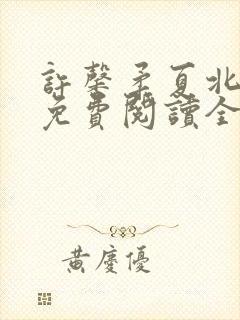 許馨矛夏北
免費閱讀全
黃慶優